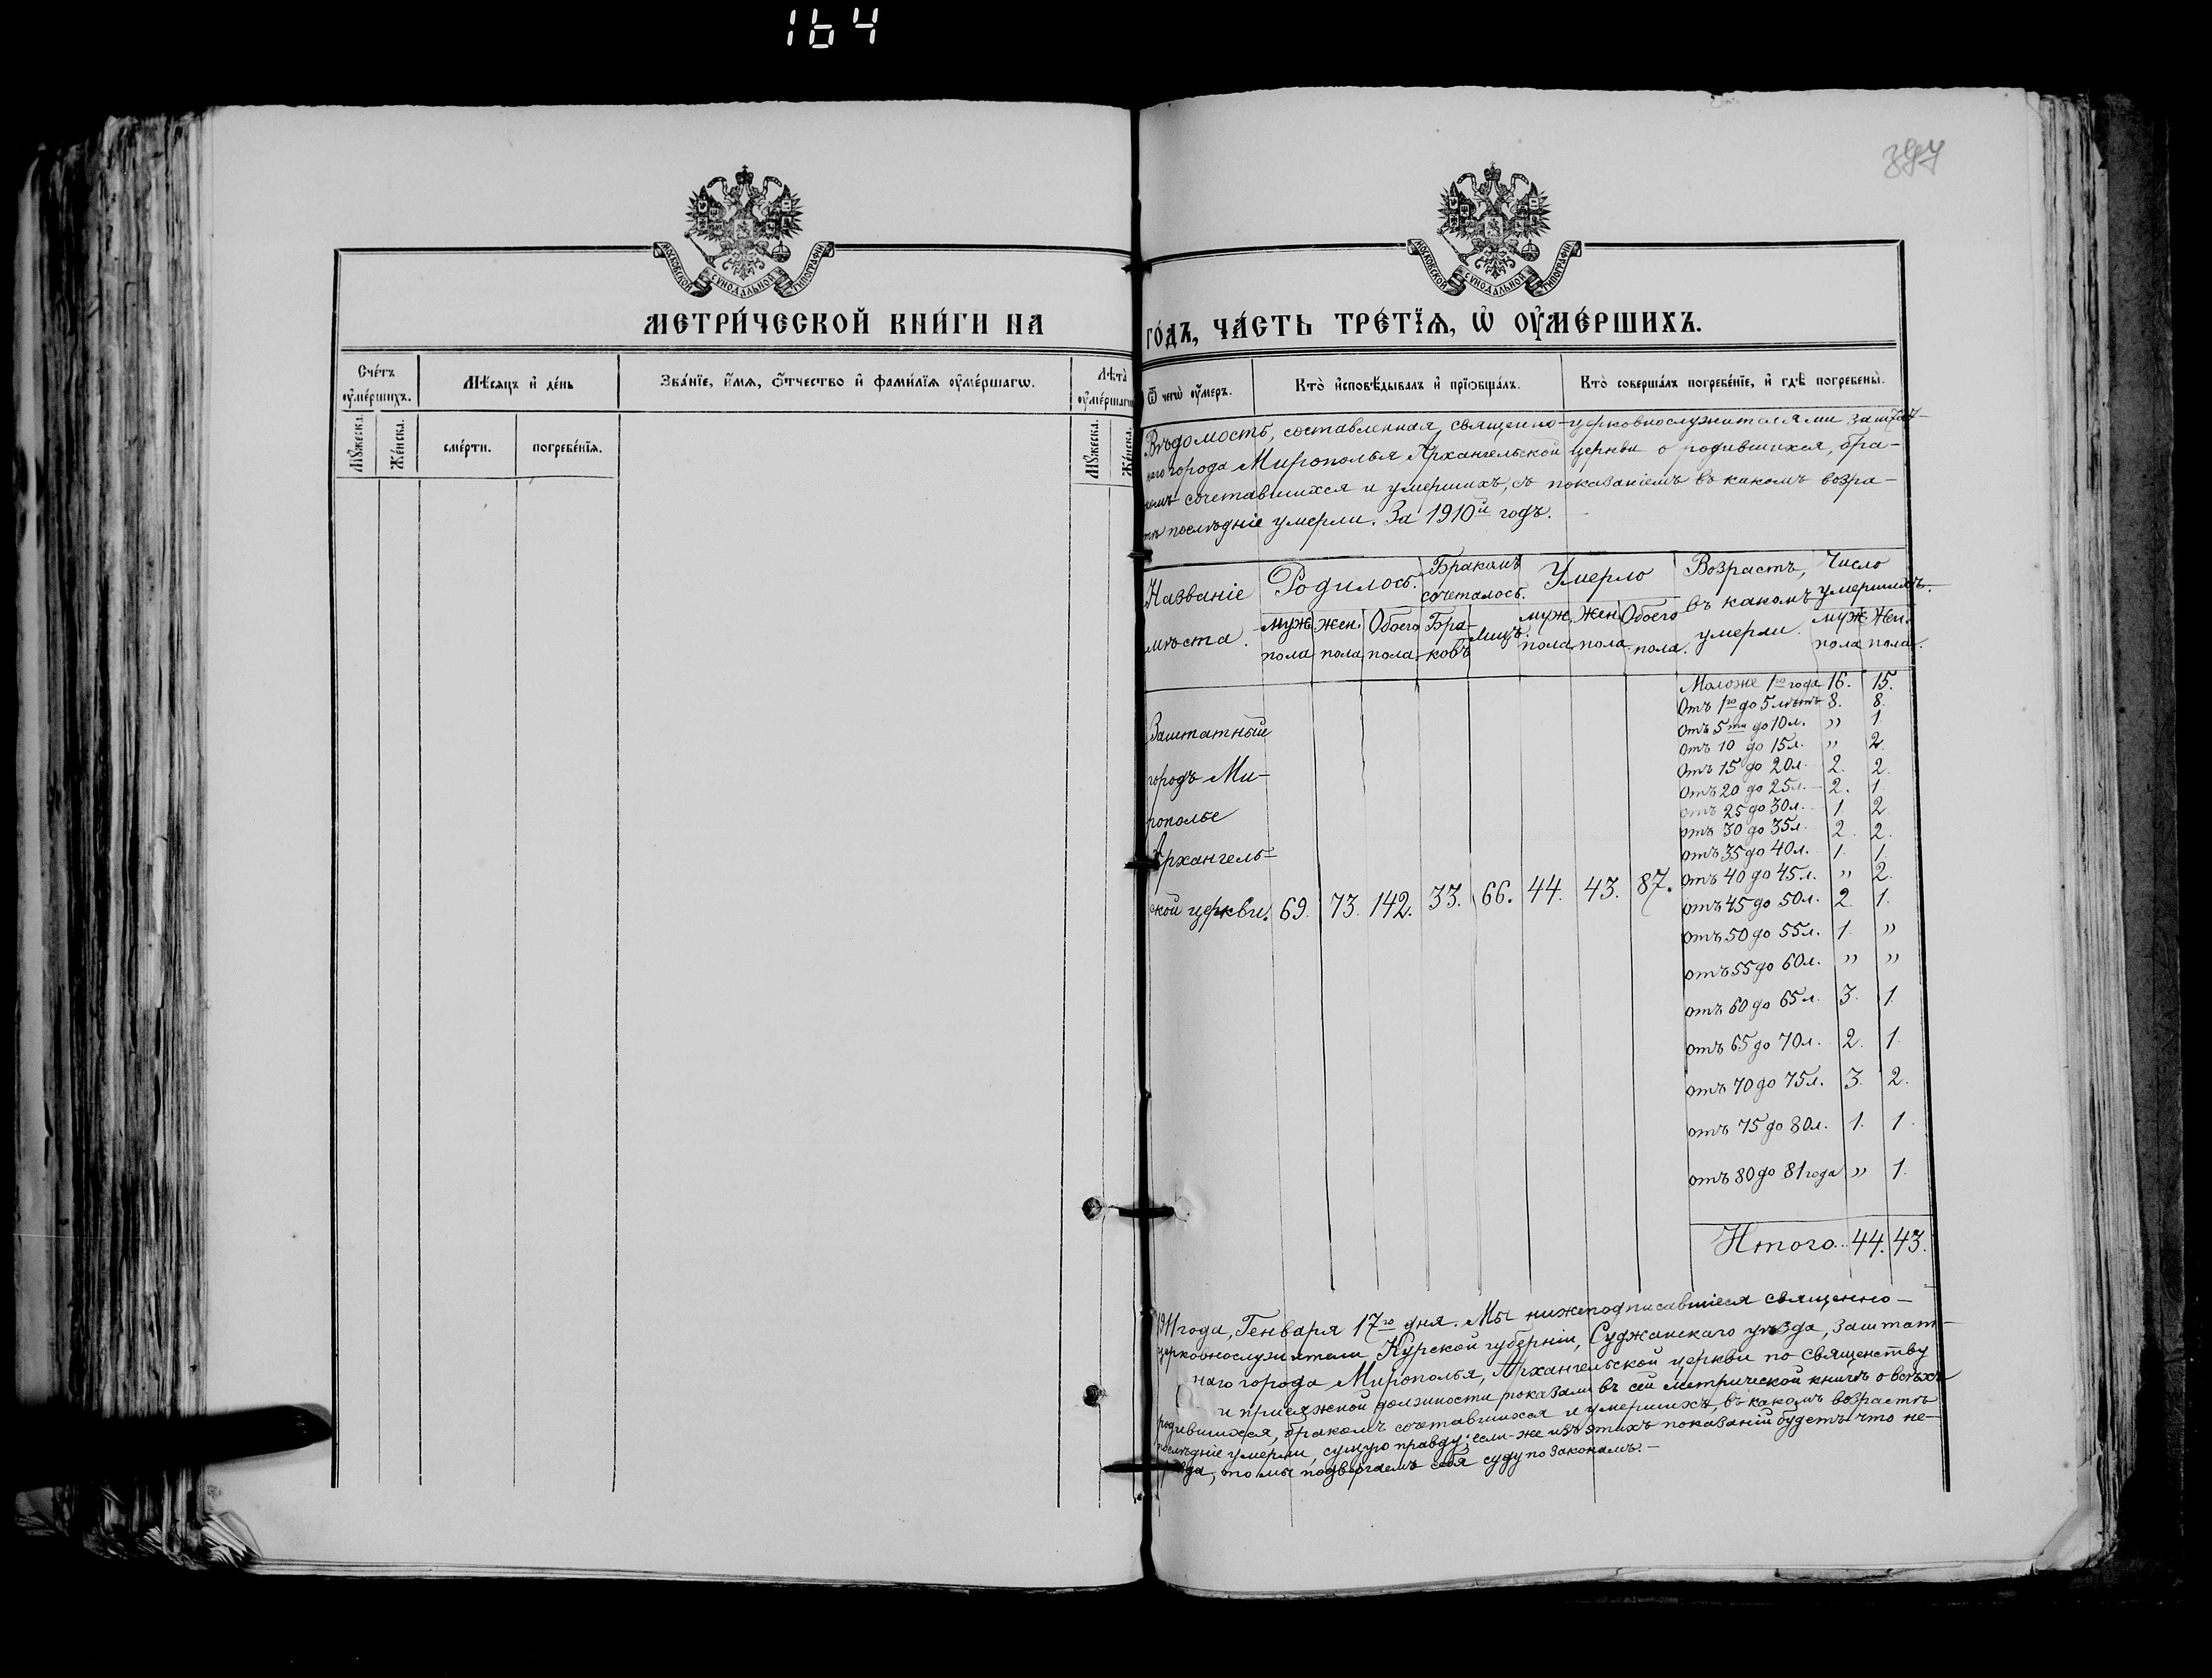 164
397
МОСКОВСКОЙ СѴНОДАЛЬНОЙ ТИПОГРАФІИ
МОСКОВСКОЙ СѴНОДАЛЬНОЙ ТИПОГРАФІИ
МЕТРИ́ЧЕСКОЙ КНИ́ГИ НА ГО́ДЪ, ЧА́СТЬ ТРЕ́ТЇѦ, Ѡ҆ ОУ҆МЕ́РШИХЪ.
Сче́тъ оу҆ме́ршихъ.
Мѣ́сяцъ и҆ де́нь
Зва́нїе, и҆́мѧ, ѻ҆́тчество и҆ фами́лїѧ оу҆ме́ршагѡ.
Лѣ́та оу҆ме́ршагѡ
Ѿ чегѡ̀ оу҆́меръ.
Кто̀ и҆сповѣ́дывалъ и҆ прїѡбща́лъ.
Кто̀ соверша́лъ погребе́нїе, и҆ гдѣ̀ погребены̀.
Мꙋ́жеска. Же́нска. сме́рти. погребе́нїѧ. Мꙋ́жеска. Же́нска.
Вѣдомость, составленная священно-церковнослужителями заштат-
наго города Мирополья Архангельской церкви о родившихся, бра-
комъ сочетавшихся и умершихъ, съ показаніемъ въ какомъ возра-
стѣ послѣдніе умерли. За 1910й годъ.
Названіе мѣста.
Родилось.
Бракомъ сочеталось.
Умерло
Возрастъ, въ какомъ умерли.
Число умершихъ.
муж. пола жен. пола Обоего пола Бра-ковъ Лицъ. муж. пола Жен. пола Обоего пола. муж. пола Жен. пола.
Заштатный
городъ Ми-
рополье
Архангель-
ской церкви. 69. 73. 142. 33. 66. 44. 43. 87.
Моложе 1го года 16. 15.
Отъ 1го до 5 лѣтъ 8. 8.
отъ 5ти до 10 л. " 1.
отъ 10 до 15 л. " 2.
отъ 15 до 20 л. 2. 2.
отъ 20 до 25 л. 2. 1.
отъ 25 до 30 л. 1. 2.
отъ 30 до 35 л. 2. 2.
отъ 35 до 40 л. 1. 1.
отъ 40 до 45 л. " 2.
отъ 45 до 50 л. 2. 1.
отъ 50 до 55 л. 1. "
отъ 55 до 60 л. " "
отъ 60 до 65 л. 3. 1.
отъ 65 до 70 л. 2. 1.
отъ 70 до 75 л. 3. 2.
отъ 75 до 80 л. 1. 1.
отъ 80 до 81 года " 1.
Итого. 44. 43.
1911 года, Генваря 17го дня. Мы нижеподписавшіеся священно-
церковнослужители Курской губерніи, Суджанскаго уѣзда, заштат-
наго города Мирополья, Архангельской церкви по священству
и присяжной должности показали въ сей метрической книгѣ о всѣхъ
родившихся, бракомъ сочетавшихся и умершихъ, въ какомъ возрастѣ
послѣдніе умерли, сущую правду; если-же изъ этихъ показаній будетъ что не-
правда, то мы подвергаемъ себя суду по законамъ.-